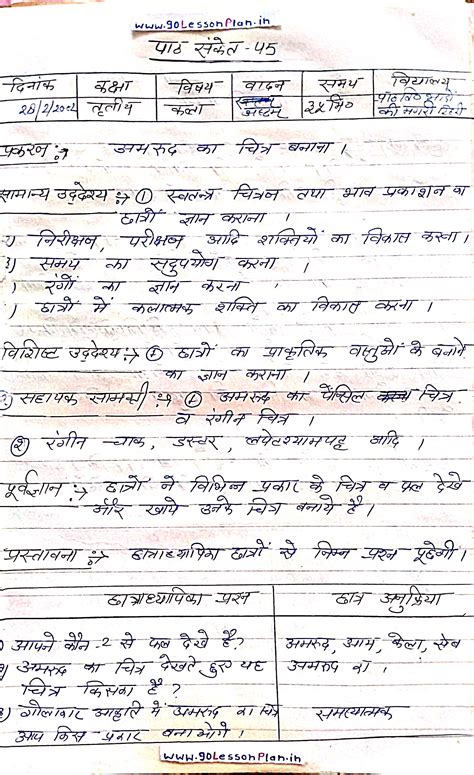 www.goLessonPlan.in
पाठ संकेत - 45
दिनांक कक्षा विषय वादन समय विद्यालय
28/2/2002 तृतीय कला अष्टम ३५ मि०
प्रकरण :→ अमरुद का चित्र बनाना ।
सामान्य उद्देश्य :→ ① स्वतन्त्र चित्रन तथा भाव प्रकाशन का
छात्रों ज्ञान कराना ।
निरीक्षण, परीक्षण आदि शक्तियों का विकास करना ।
3) समय का सदुपयोग करना ।
) रंगों का ज्ञान करना ।
) छात्रों में कलात्मक शक्ति का विकास करना ।
विशिष्ट उद्देश्य :→ ① छात्रों का प्राकृतिक वस्तुओं के बनाने
का ज्ञान कराना ।
सहायक सामग्री :→ ① अमरुद का पेंसिल चित्र
व रंगीन चित्र ।
② रंगीन चाक, डस्टर, लपेटश्यामपट्ट आदि ।
पूर्वज्ञान :→ छात्रों ने विभिन्न प्रकार के चित्र व फल देखे
और खाये उनके चित्र बनाये है ।
प्रस्तावना :→ छात्राध्यापिका छात्रों से निम्न प्रश्न पूछेगी ।
छात्राध्यापिका प्रश्न छात्र अनुक्रिया
) आपने कौन-2 से फल देखे है ? अमरुद, आम, केला, सेब
) अमरुद का चित्र देखते हुए यह अमरुद का ।
चित्र किसका है ?
3) गोलाकार आकृति में अमरुद का चित्र समस्यात्मक
आप किस प्रकार बनाओगे ।
www.goLessonPlan.in